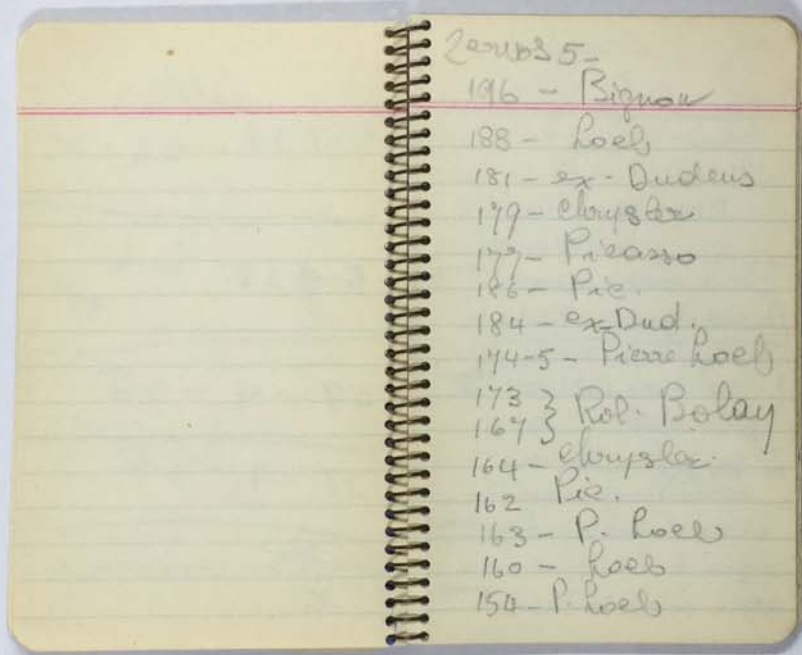 Zervos 5-
196 - Bignou
188 - Loeb
181 - ex-Dudens
179 - Chrysler
177 - Picasso
186 - Pic.
184 - ex-Dud.
174-5 - Pierre Loeb
173 } Rol. Bolay
167 }
164 - Chrysler.
162 Pic.
163 - P. Loeb
160 - Loeb
154 - P. Loeb